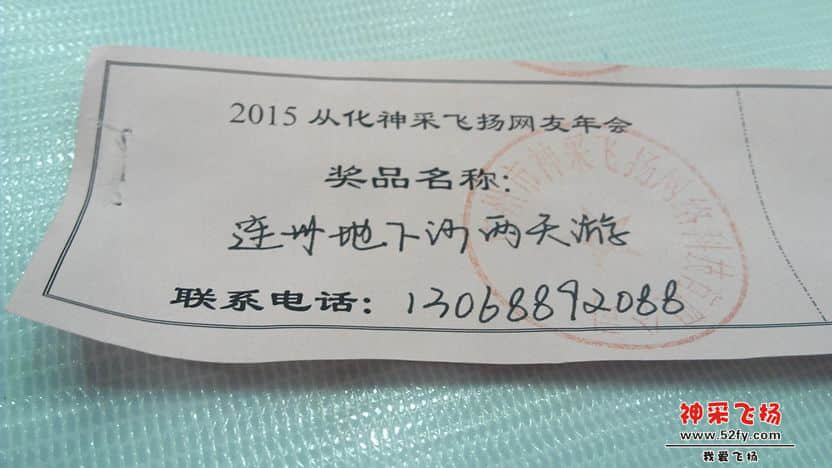 2015 从化神采飞扬网友年会
奖品名称:
连州地下河两天游
联系电话: 13068892088
州市神采飞扬网络科技有限公司
神采飞扬
www.52fy.com
我爱飞扬